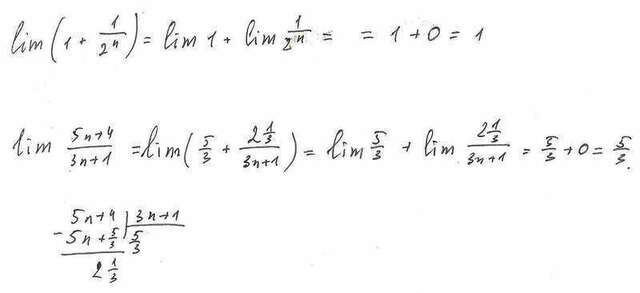 lim (1 + 1/2ⁿ) = lim 1 + lim 1/2ⁿ = = 1 + 0 = 1
lim (5n+4)/(3n+1) = lim (5/3 + 2 1/3/(3n+1)) = lim 5/3 + lim 2 1/3/(3n+1) = 5/3 + 0 = 5/3.
5n+4 | 3n+1
- 5n + 5/3 | 5/3
2 1/3